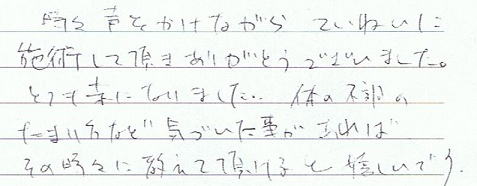 時々声をかけながら ていねいに
施術して頂きありがとうございました。
とても楽になりました。 体の不調の
たまり方など 気づいた事があれば
その時々に教えて頂けると嬉しいです。